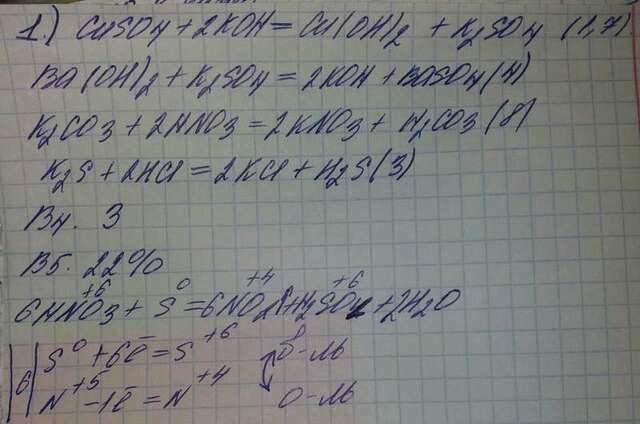 1.) CuSO4 + 2KOH = Cu(OH)2 + K2SO4 (1,7)
Ba(OH)2 + K2SO4 = 2KOH + BaSO4 (4)
K2CO3 + 2HNO3 = 2KNO3 + H2CO3 (8)
K2S + 2HCl = 2KCl + H2S (3)
В4. 3
В5. 22%
+6 0 +4 +6
6HNO3 + S = 6NO2↑ + H2SO4 + 2H2O
S0 + 6ē = S+6
6 N+5 - 1ē = N+4 О-ль